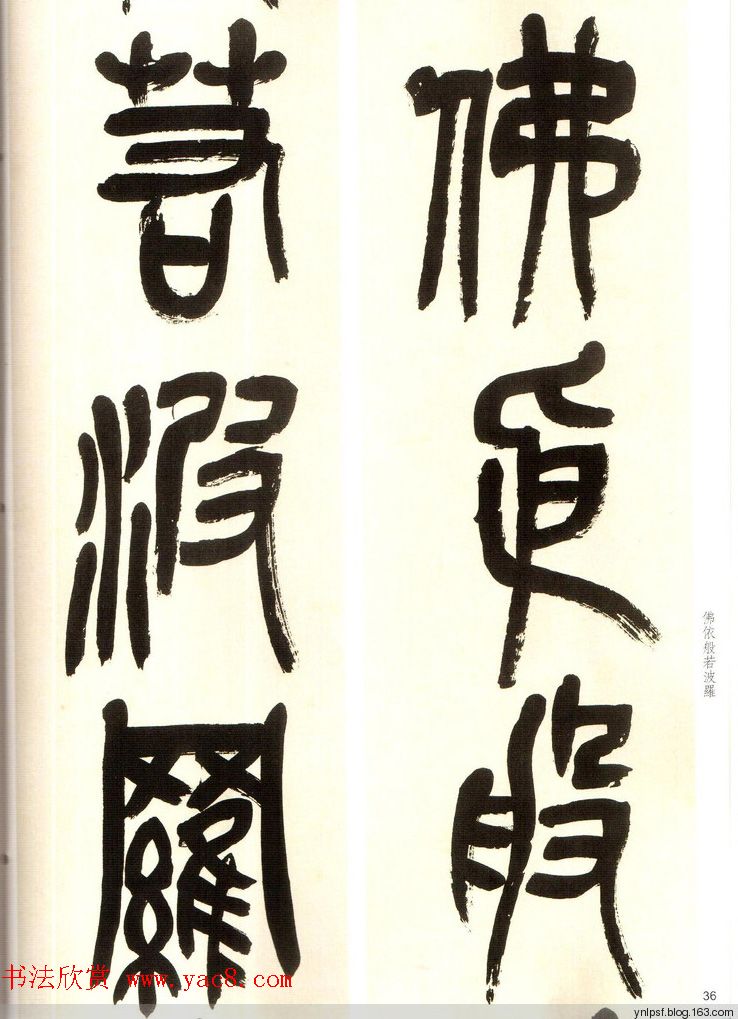 佛依般
若波羅
佛依般若波羅
书法欣赏 www.yac8.com
36
ynlpsf.blog.163.com